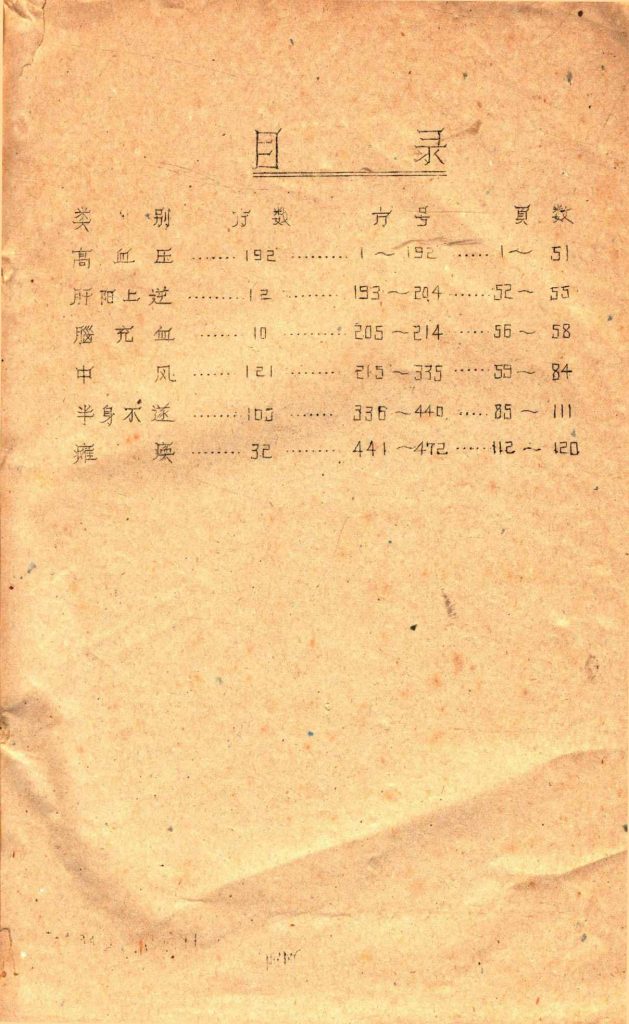 目 录
类 别 方 数 方 号 頁 数
高 血 压 …… 192 ……… 1～192 …… 1～51
肝阳上逆 …… 12 ……… 193～204 …… 52～55
腦 充 血 …… 10 ……… 205～214 …… 56～58
中 风 …… 121 ……… 215～335 …… 59～84
半身不遂 …… 105 ……… 336～440 …… 85～111
瘫 痪 …… 32 ……… 441～472 …… 112～120